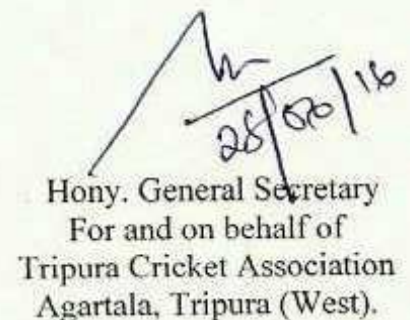 Hony. General Secretary
For and on behalf of
Tripura Cricket Association
Agartala, Tripura (West).